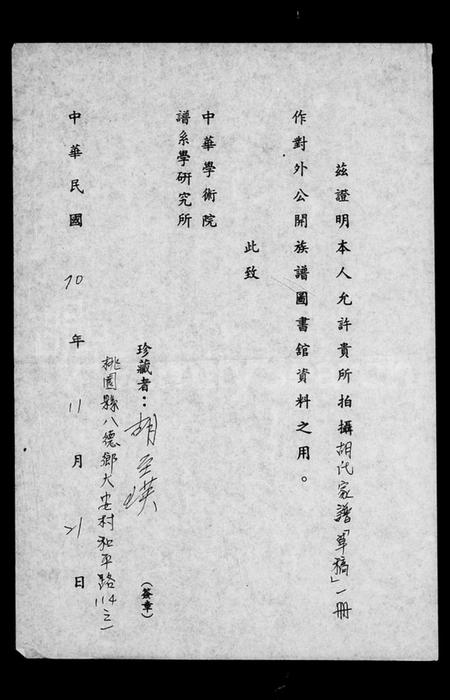 茲證明本人允許貴所拍攝胡氏家譜「草稿」一冊
作對外公開族譜圖書舘資料之用。
此致
中華學術院
譜系學研究所
珍藏者：胡至瑛（簽章）
桃園縣八德鄉大安村和平路114之1
中華民國70年11月21日